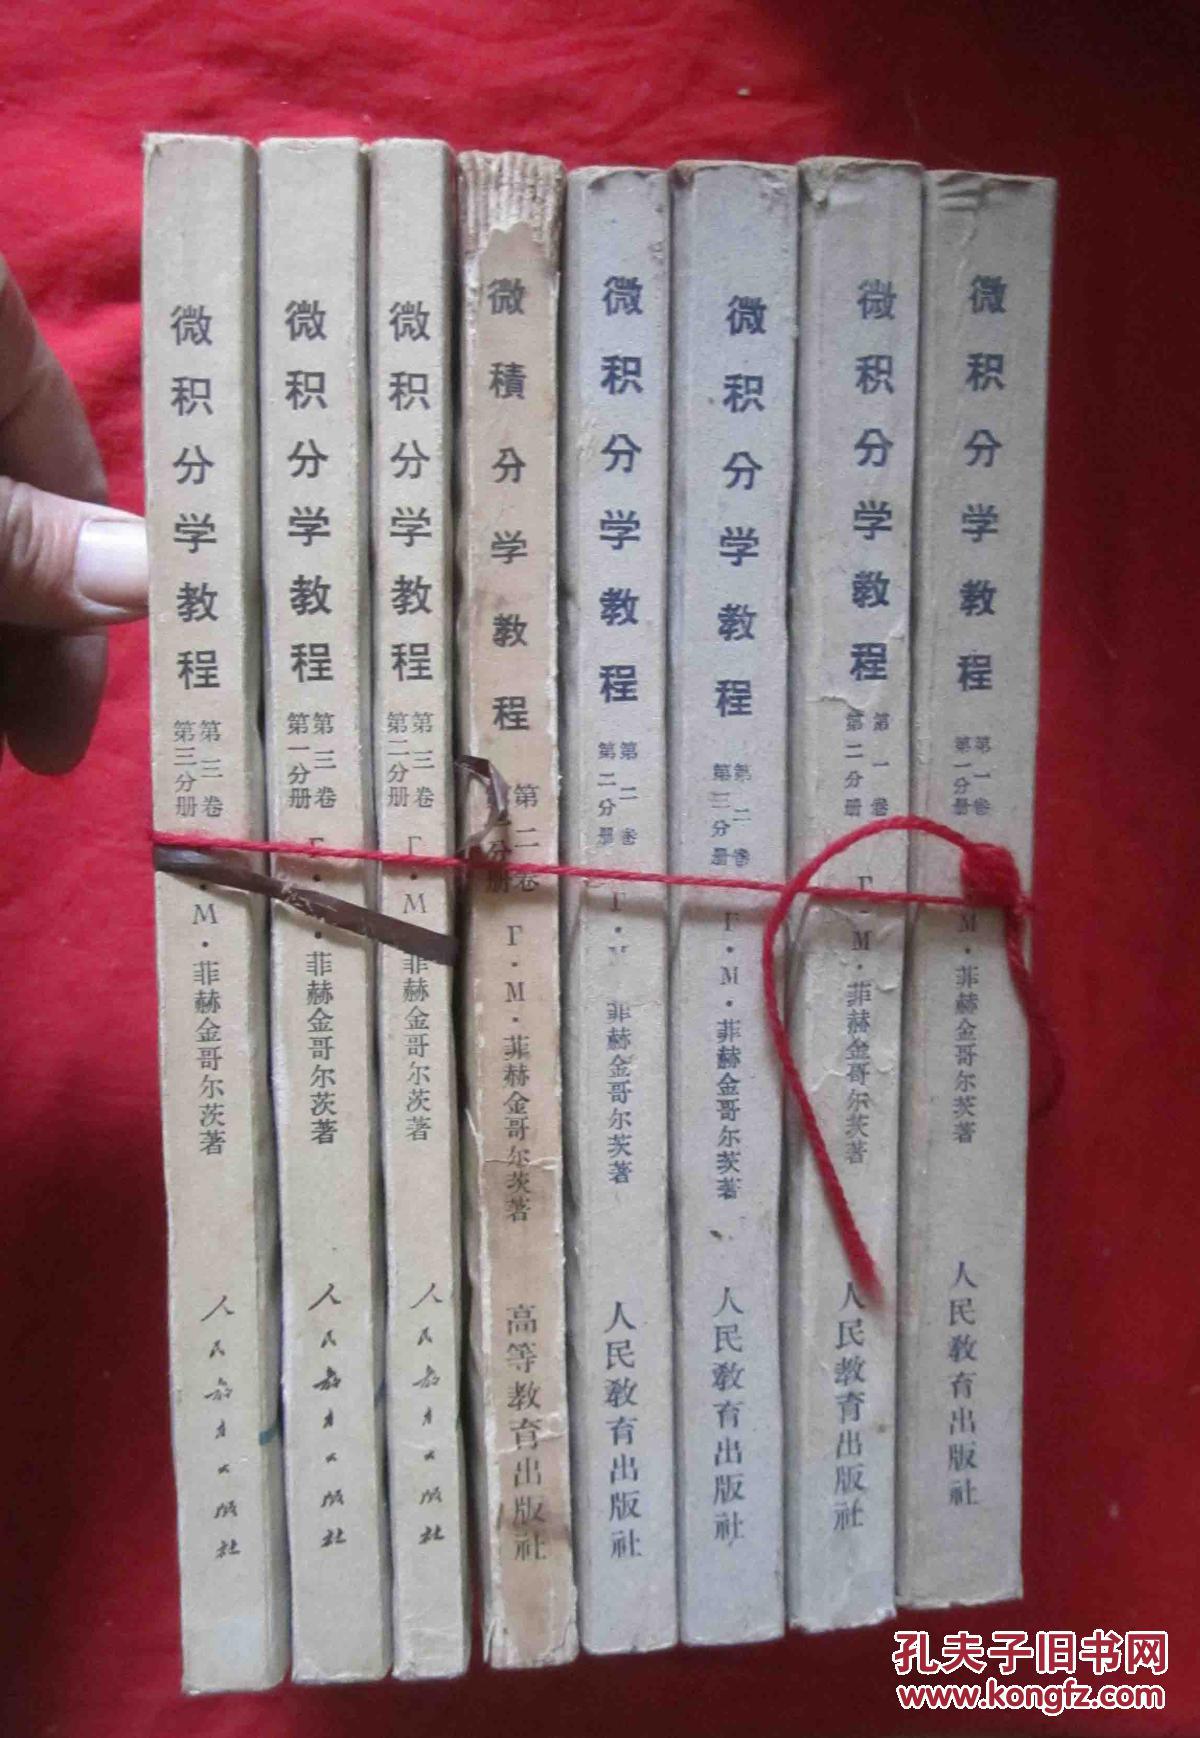 微积分学教程
第三卷
第三分册
·M·菲赫金哥尔茨著
人民教育出版社
微积分学教程
第三卷
第一分册
Г·菲赫金哥尔茨著
人民教育出版社
微积分学教程
第三卷
第二分册
Г·M·菲赫金哥尔茨著
人民教育出版社
微積分学教程
第二卷
分册
Г·M·菲赫金哥尔茨著
高等教育出版社
微积分学教程
第二卷
第二分册
Г·菲赫金哥尔茨著
人民教育出版社
微积分学教程
第二卷
第三分册
Г·M·菲赫金哥尔茨著
人民教育出版社
微积分学教程
第一卷
第二分册
Г·M·菲赫金哥尔茨著
人民教育出版社
微积分学教程
第一卷
第一分册
M·菲赫金哥尔茨著
人民教育出版社
孔夫子旧书网
www.kongfz.com